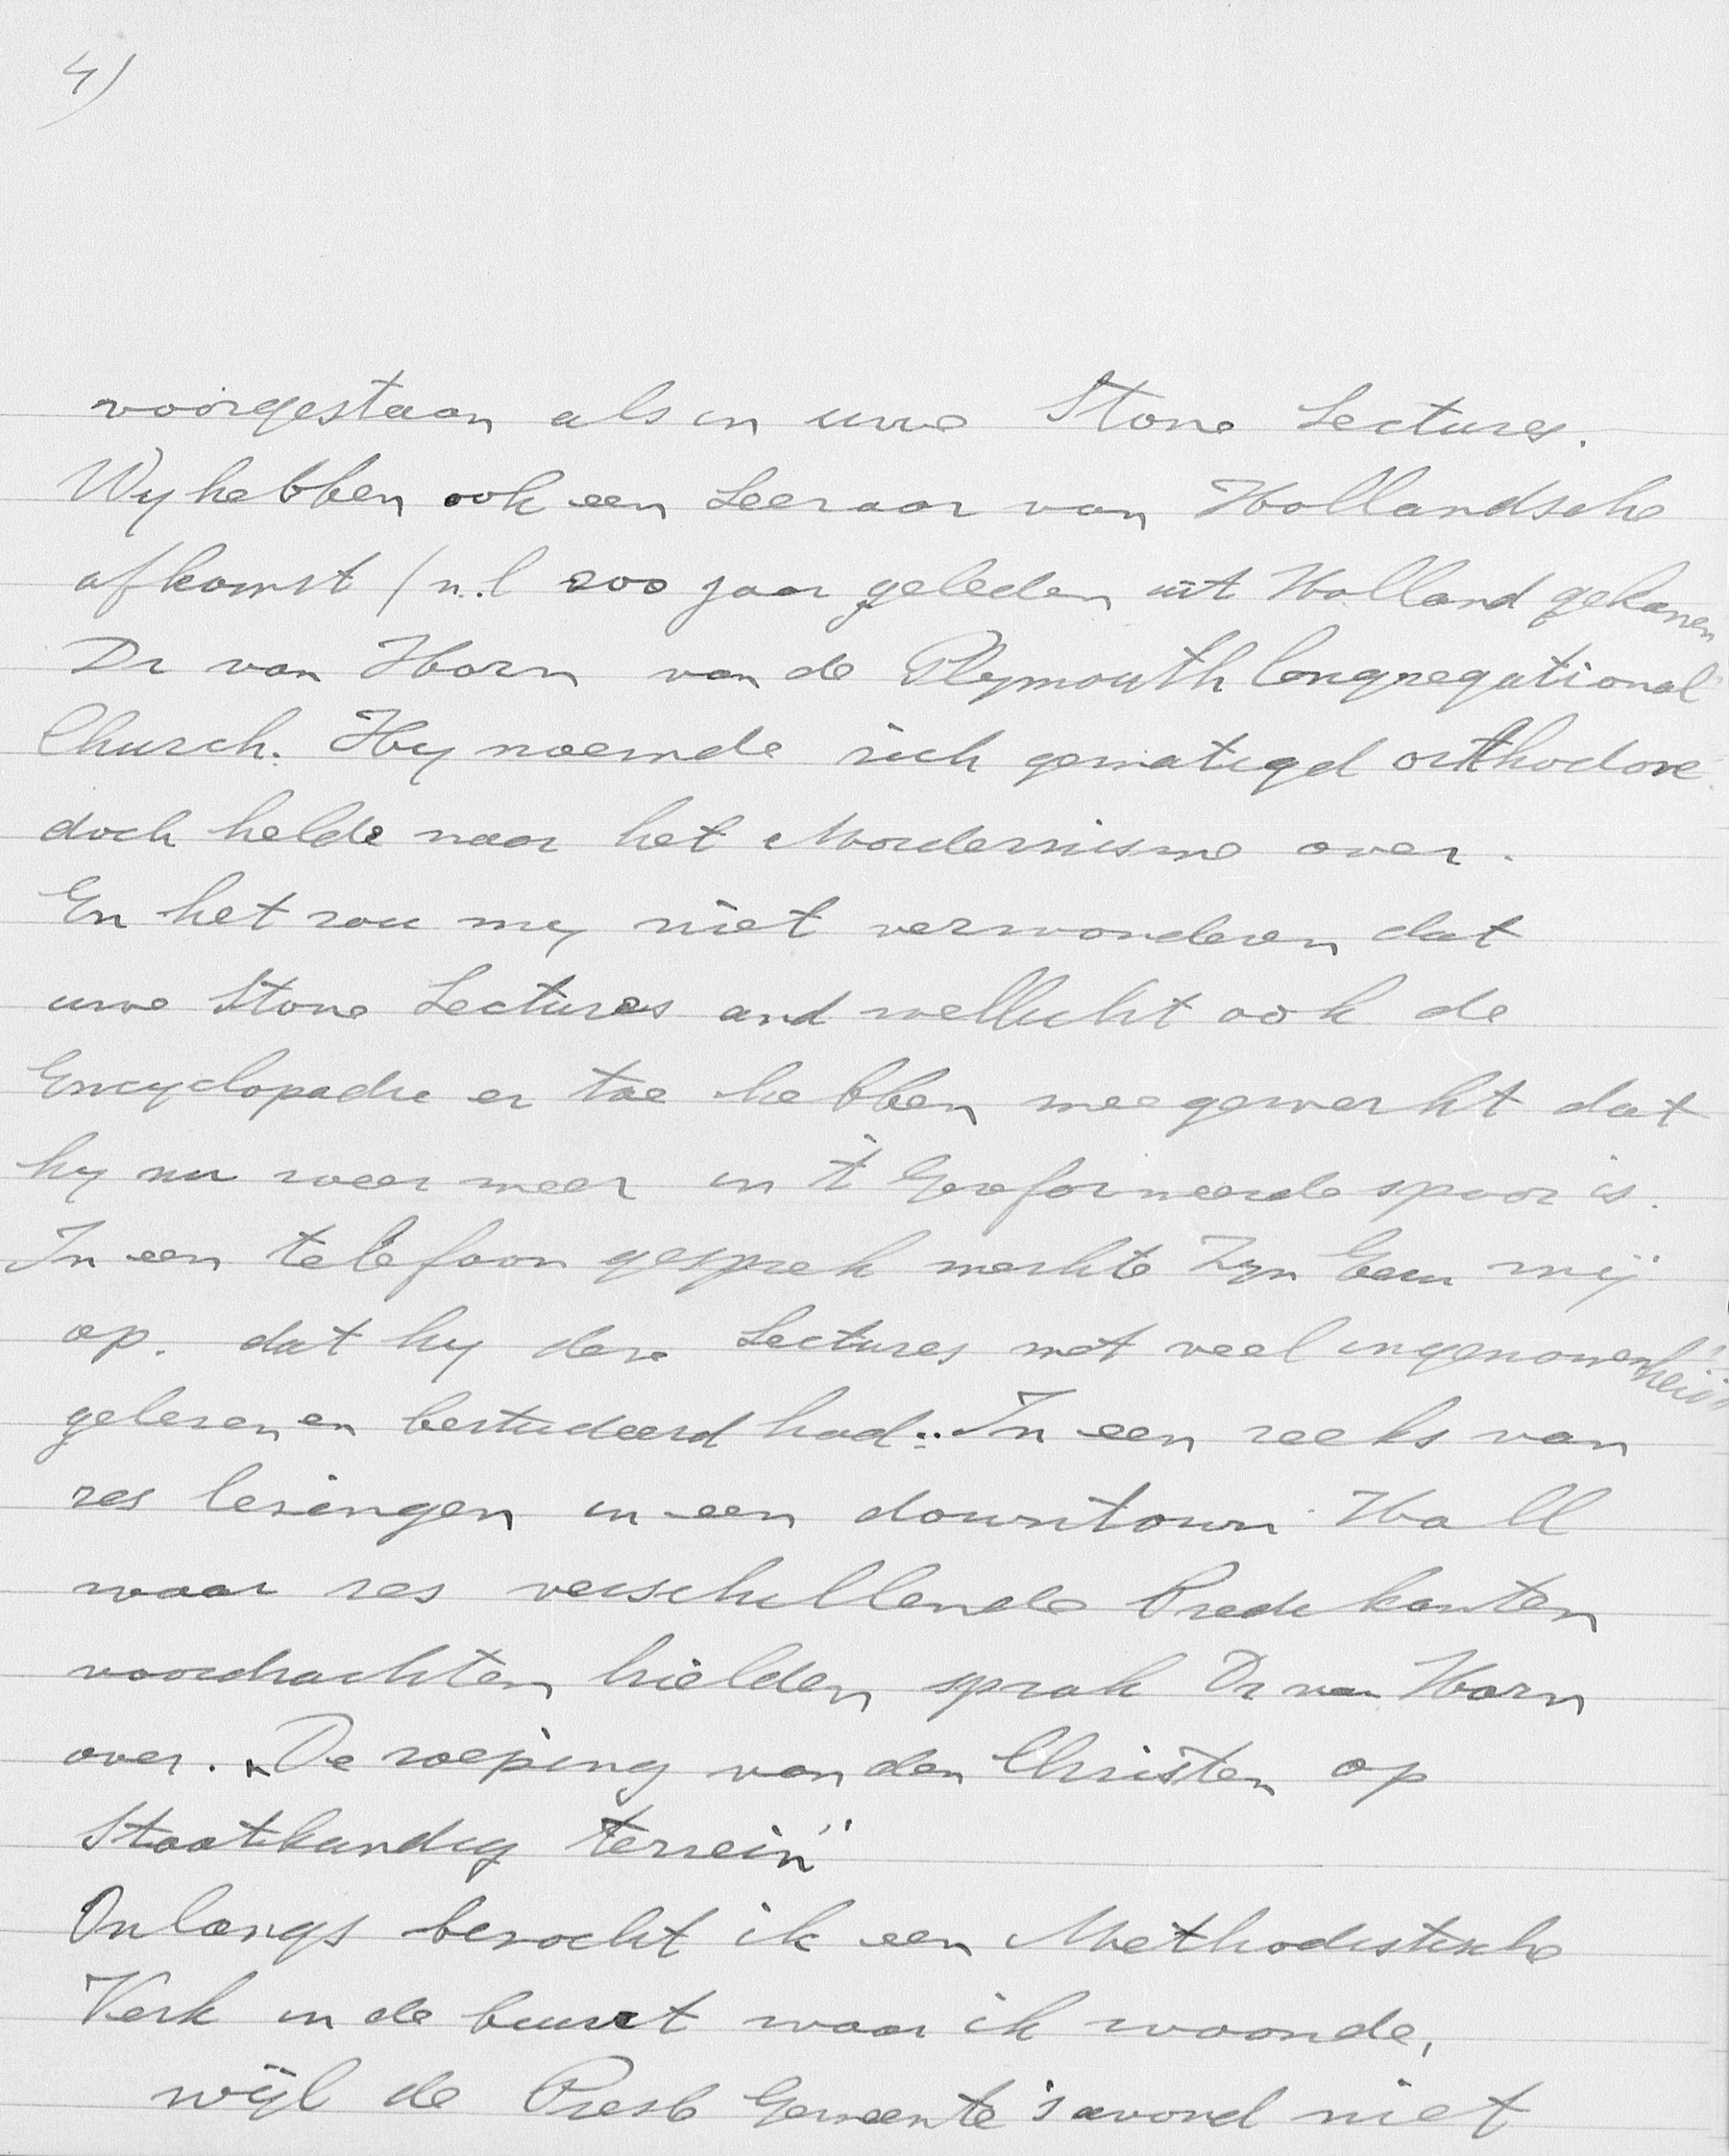 4)
voorgestaan als in uwe Stone Lectures.
Wy hebben ook een Leeraar van Hollandsche
afkomst (n.l 200 jaar geleden uit Holland gekomen
Dr van Horn van de Plymouth Congregational
Church. Hy noemde zich gematigd orthodox
doch helde naar het Modernisme over.
En het zou my niet verwonderen dat
uwe Stone Lectures and wellicht ook de
Encyclopadie er toe hebben meegewerkt dat
hy nu weer meer in 't Gereformeerde spoor is.
In een telefoon gesprek merkte Zyn Eerw mij
op. dat hy deze Lectures met veel ingenomenheid
gelezen en bestudeerd had.. In een reeks van
zes lezingen in een downtown Hall
waar zes verschillende Predikanten
voordrachten hielden sprak Dr van Horn
over. "De roeping van den Christen op
Staatkundig terrein"
Onlangs bezocht ik een Methodistische
Kerk in de buurt waar ik woonde,
wijl de Presb Gemeente 's avond niet